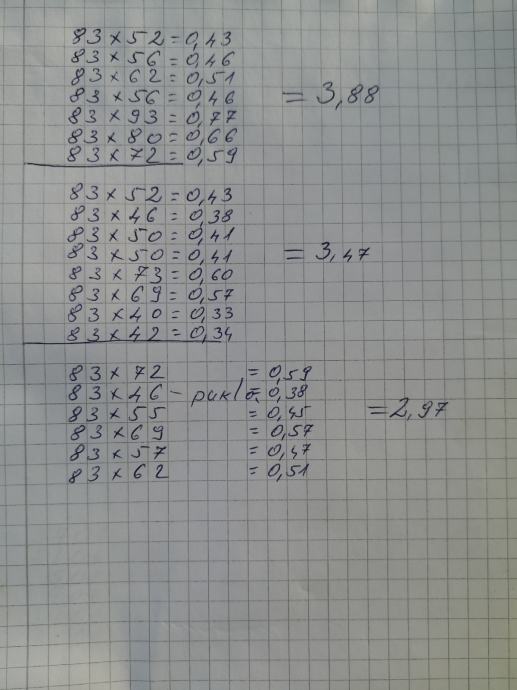 83 × 52 = 0,43
83 × 56 = 0,46
83 × 62 = 0,51
83 × 56 = 0,46
83 × 93 = 0,77
83 × 80 = 0,66
83 × 72 = 0,59
= 3,88
83 × 52 = 0,43
83 × 46 = 0,38
83 × 50 = 0,41
83 × 50 = 0,41
83 × 73 = 0,60
83 × 69 = 0,57
83 × 40 = 0,33
83 × 42 = 0,34
= 3,47
83 × 72 = 0,59
83 × 46 - = 0,38
83 × 55 = 0,45
83 × 69 = 0,57
83 × 57 = 0,47
83 × 62 = 0,51
= 2,97